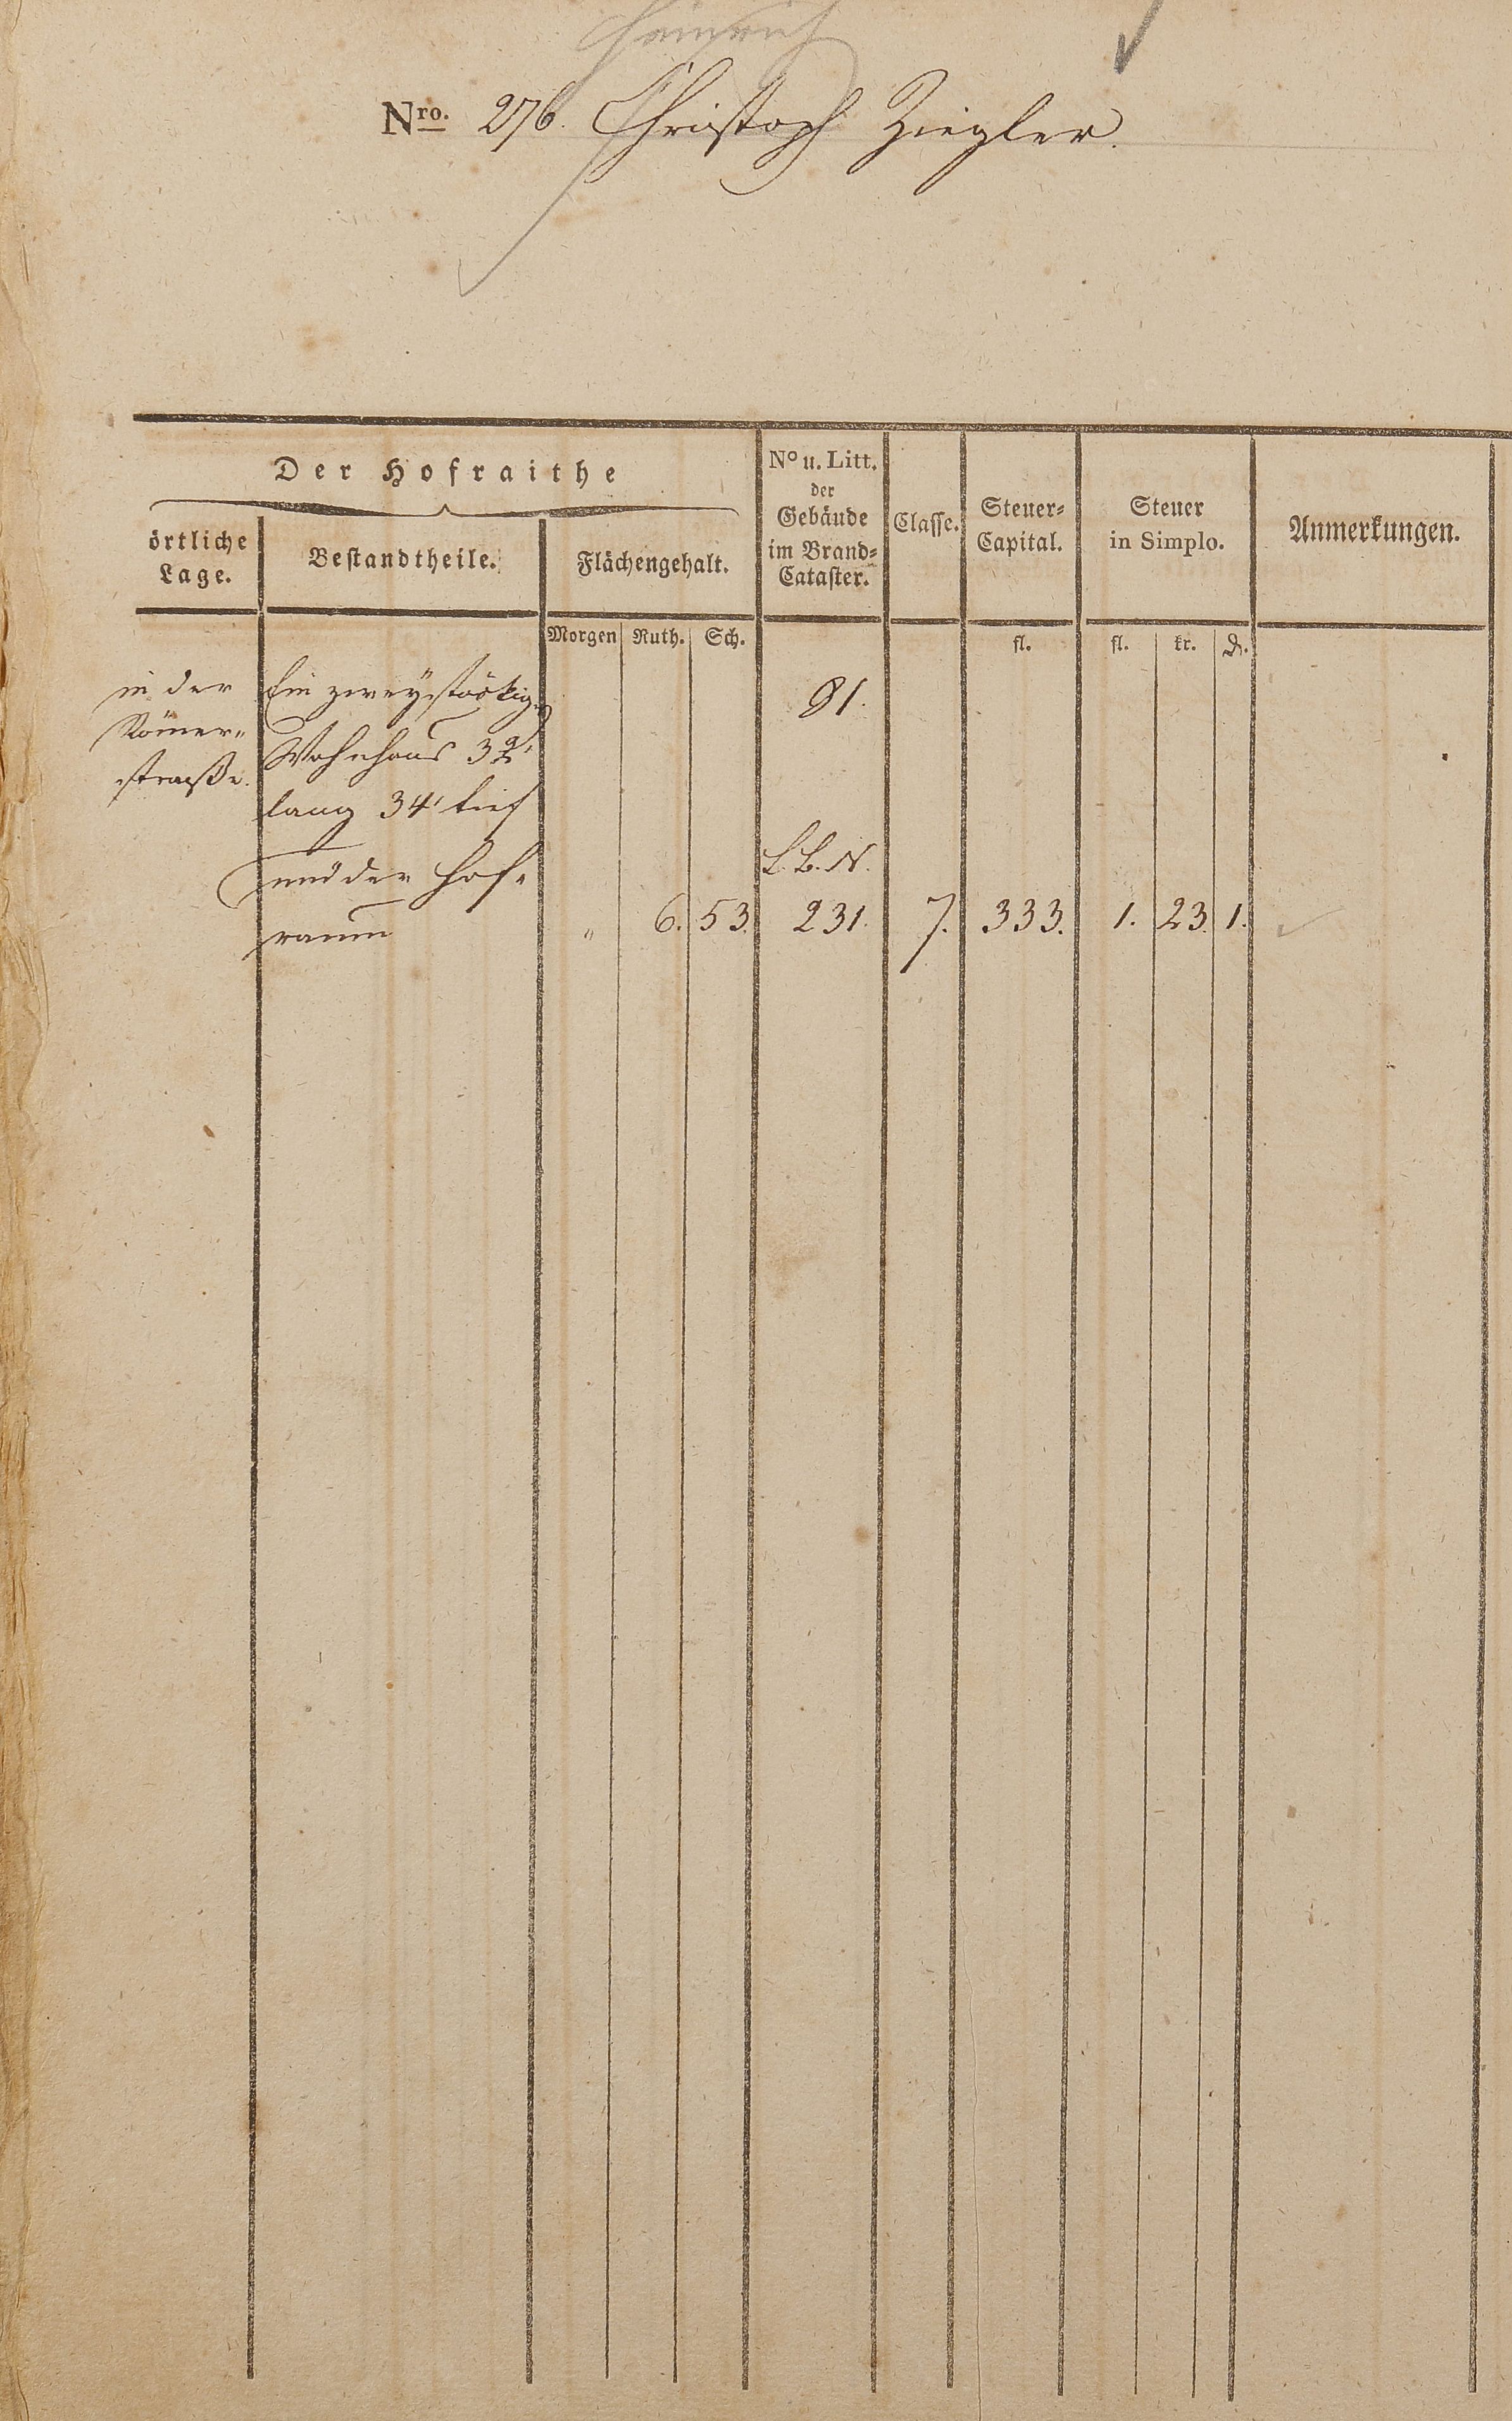 Heinrich
Nro. 276. Christoph Ziegler.
Der Hofraithe
örtliche Lage.
Bestandtheile.
Flächengehalt.
No u. Litt. der Gebäude im Brand-Cataster.
Classe.
Steuer-Capital.
Steuer in Simplo.
Anmerkungen.
Morgen Ruth. Sch. fl. fl. kr. d.
in der Ein zweystöckig 81.
Römer- Wohnhaus
straße. lang 34' tief
L. B. N.
und der Hof-
raum " 6. 53. 231. 7. 333. 1. 23. 1.